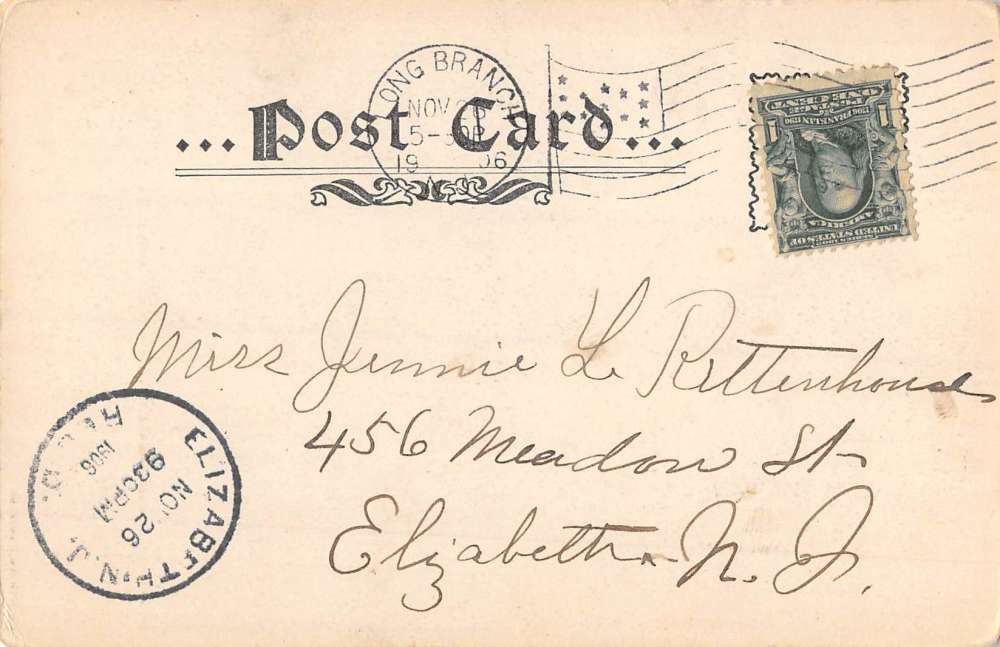 LONG BRANCH
NOV 26
5-30P
1906
...Post Card...
ONE CENT
POSTAGE
1706 FRANKLIN 1790
1 1
SERIES 1902
UNITED STATES OF
AMERICA
Miss Jennie L. Rittenhouse
456 Meadow St
Elizabeth N. J.
ELIZABETH, N.J.
NOV 26
930PM
1906
REC'D.